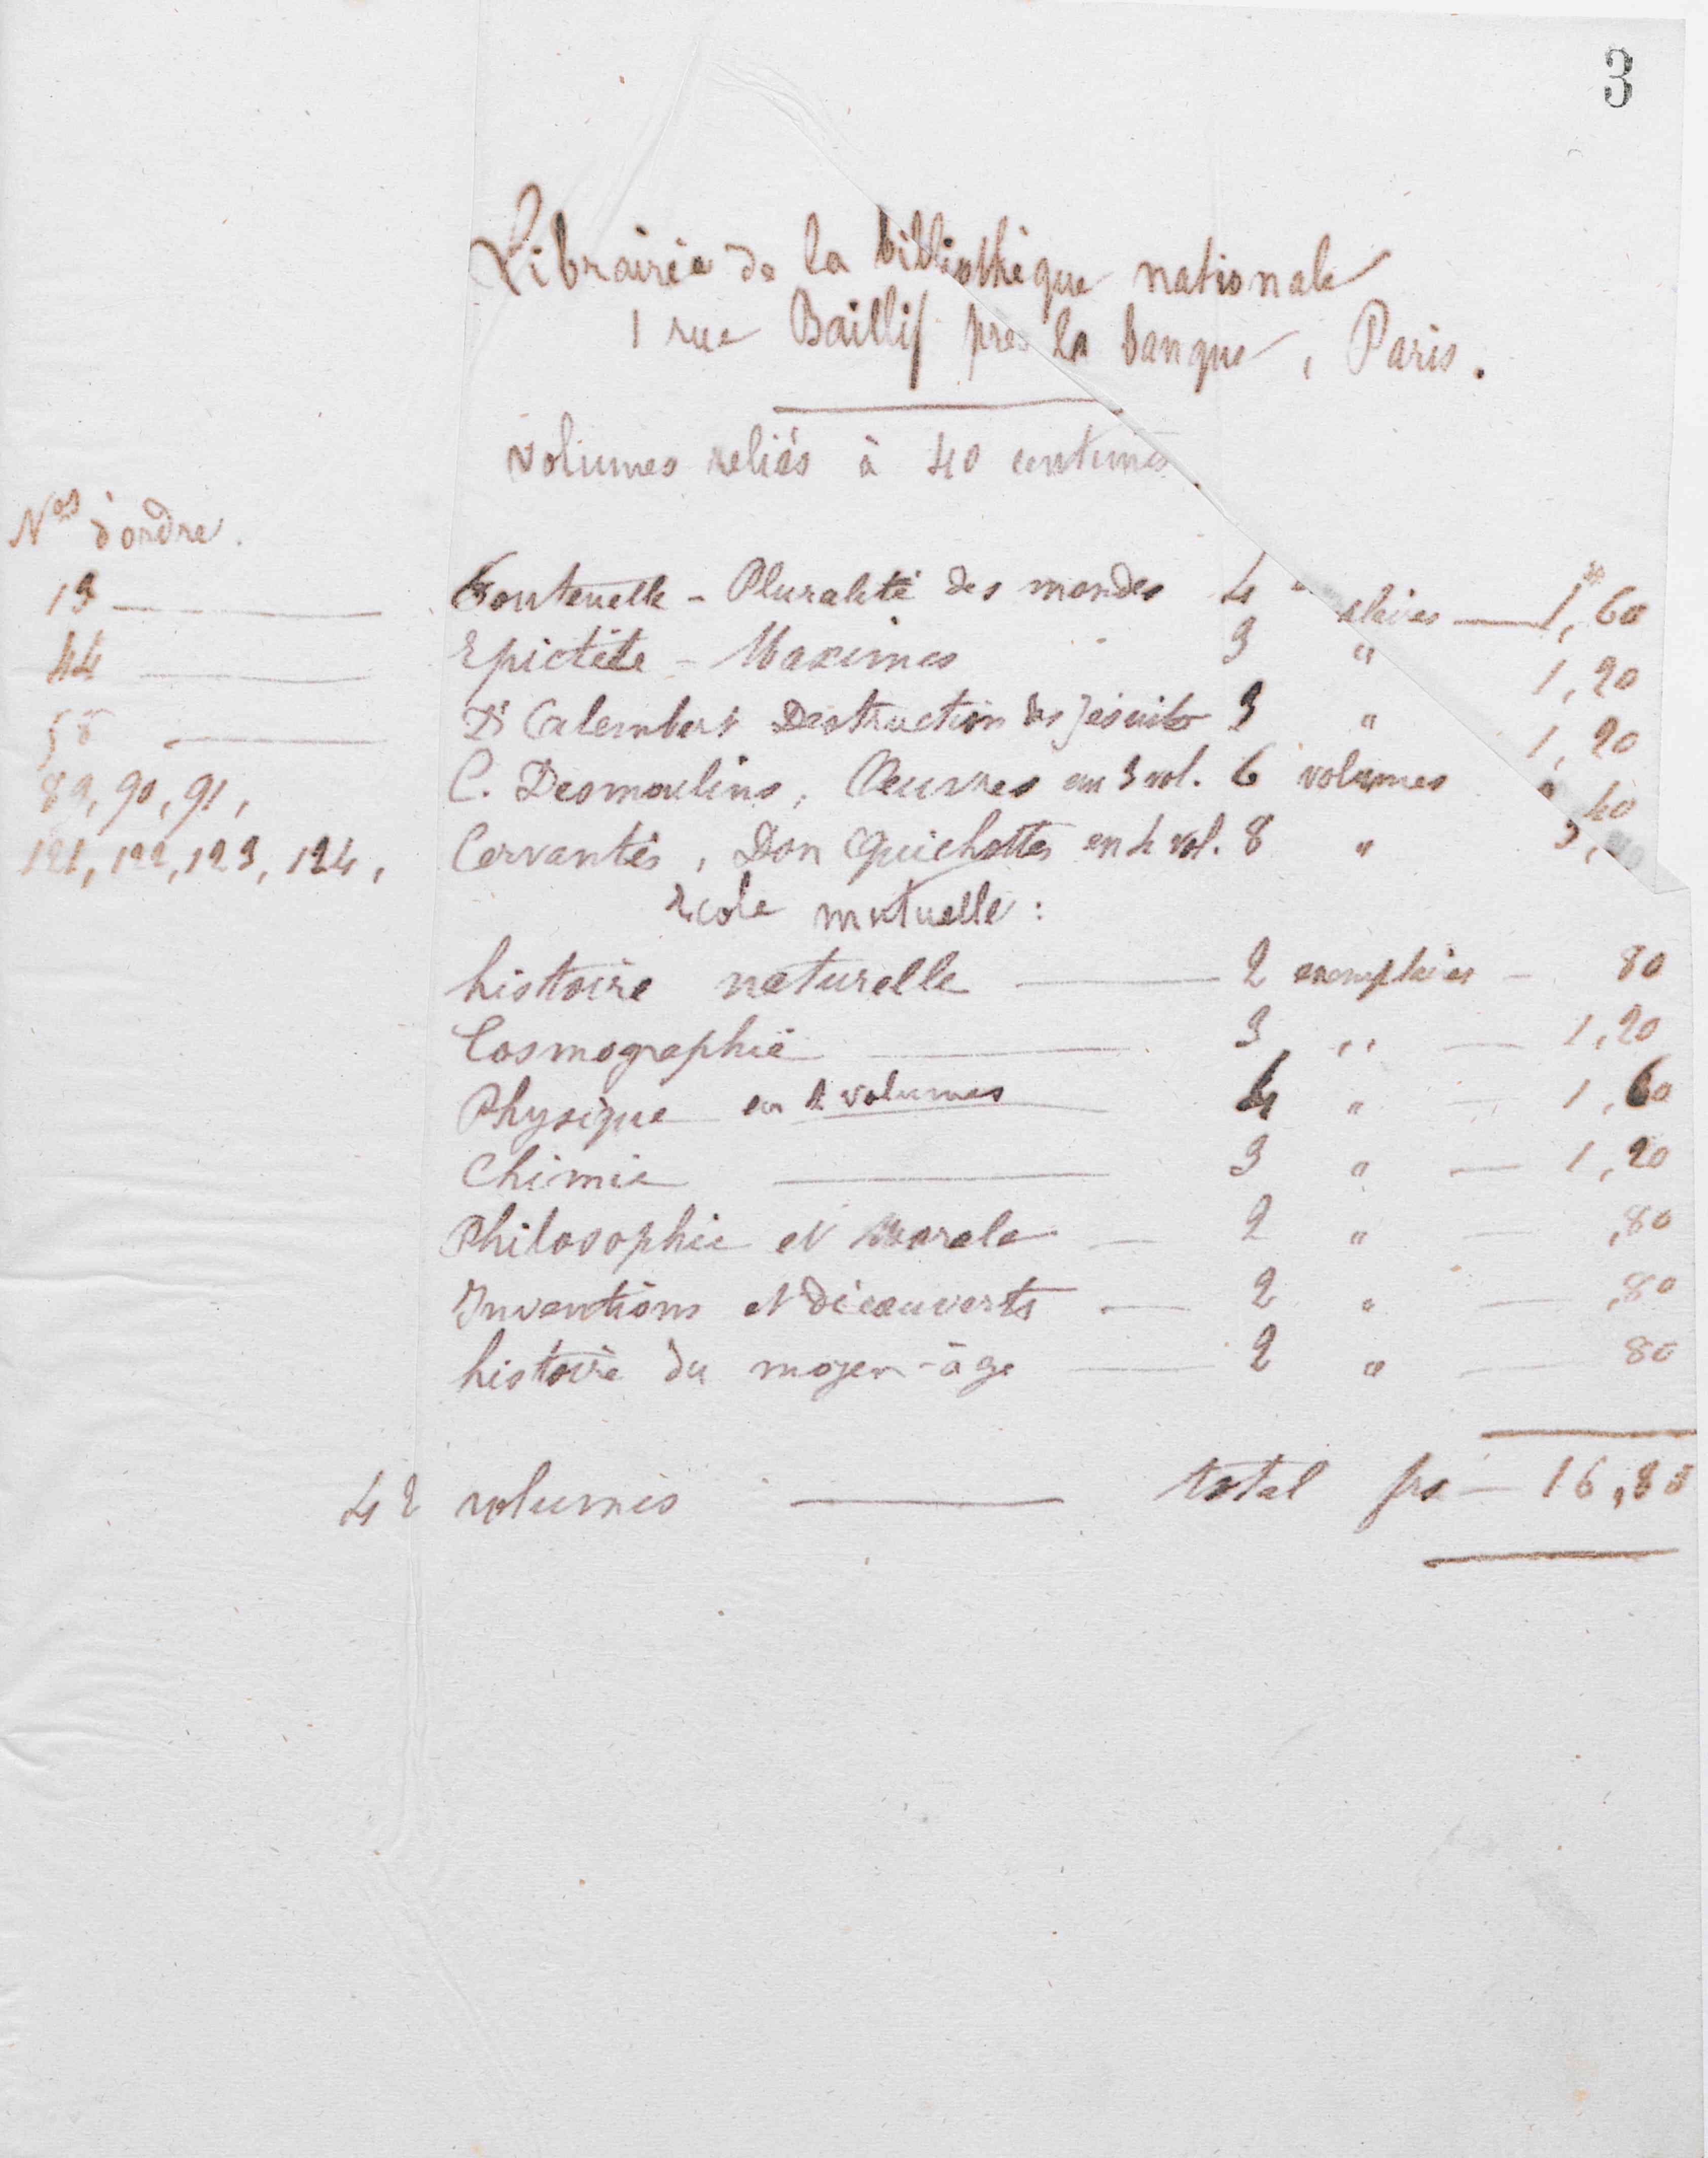 3
Librairie de la bibliothèque nationale
1 rue Baillif près la banque, Paris.
volumes reliés à 40 centimes
Nos d'ordre.
13 — Fontenelle - Pluralité des mondes 4 " plaires — 1, 60
44 — Epictète - Maximes 3 " 1, 20
58 — D'Calembert Destruction des Jésuites 3 " 1, 20
89, 90, 91, C. Desmoulins, Œuvres en 3 vol. 6 volumes 2 40
121, 122, 123, 124, Cervantès, Don Quichotte en 4 vol. 8 " 3,
Ecole mutuelle :
histoire naturelle — 2 exemplaires — 80
Cosmographie — 3 " — 1,20
Physique en 2 volumes 4 " — 1,60
Chimie — 3 " — 1,20
Philosophie et Morale — 2 " — ,80
Inventions et découverts — 2 " — ,80
histoire du moyen-âge — 2 " — 80
42 volumes — total frs — 16,80